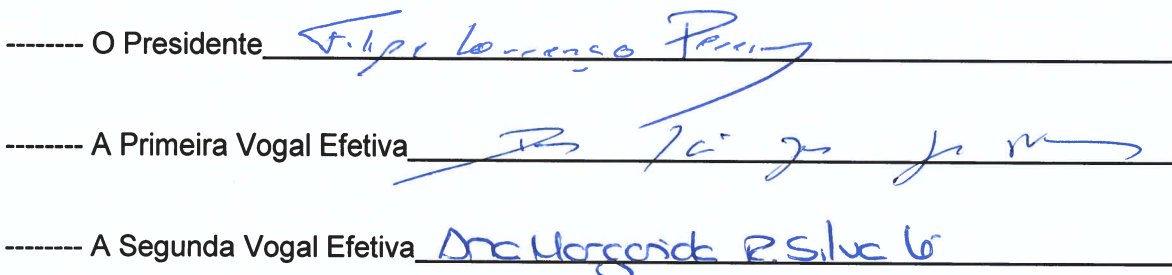 -------- O Presidente Filipe Lourenço Pereira
-------- A Primeira Vogal Efetiva
-------- A Segunda Vogal Efetiva Ana Margarida R. Silva